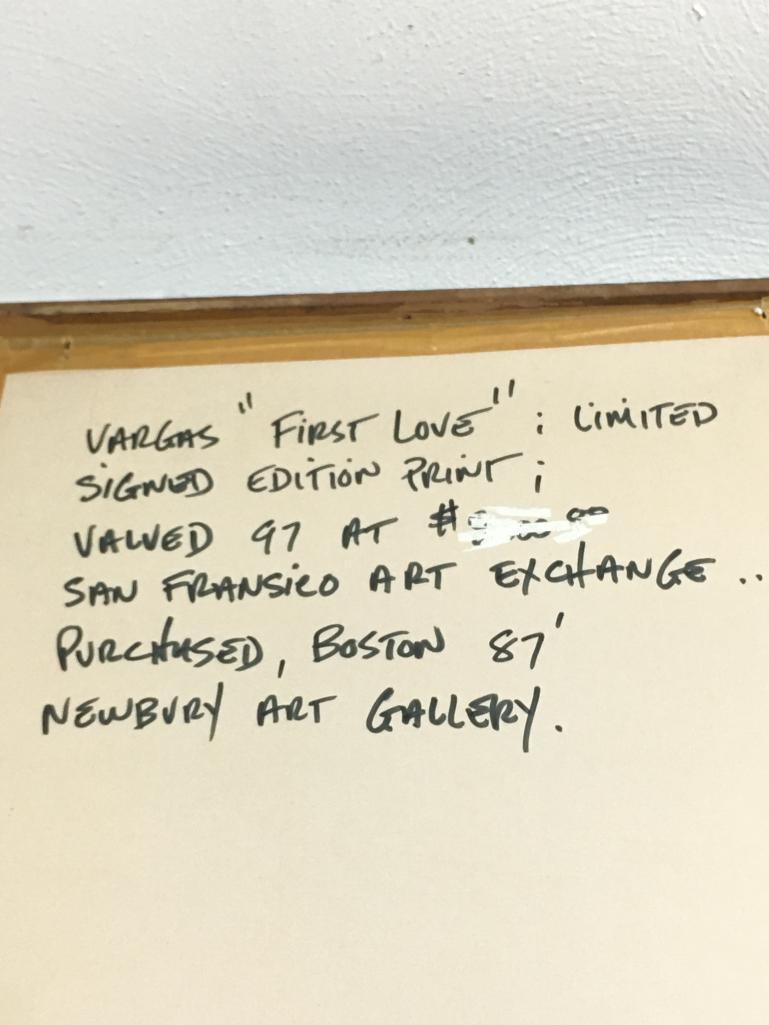 VARGAS "FIRST LOVE" ; LIMITED
SIGNED EDITION PRINT ;
VALUED 97 AT $
SAN FRANSICO ART EXCHANGE ..
PURCHASED, BOSTON 87'
NEWBURY ART GALLERY.